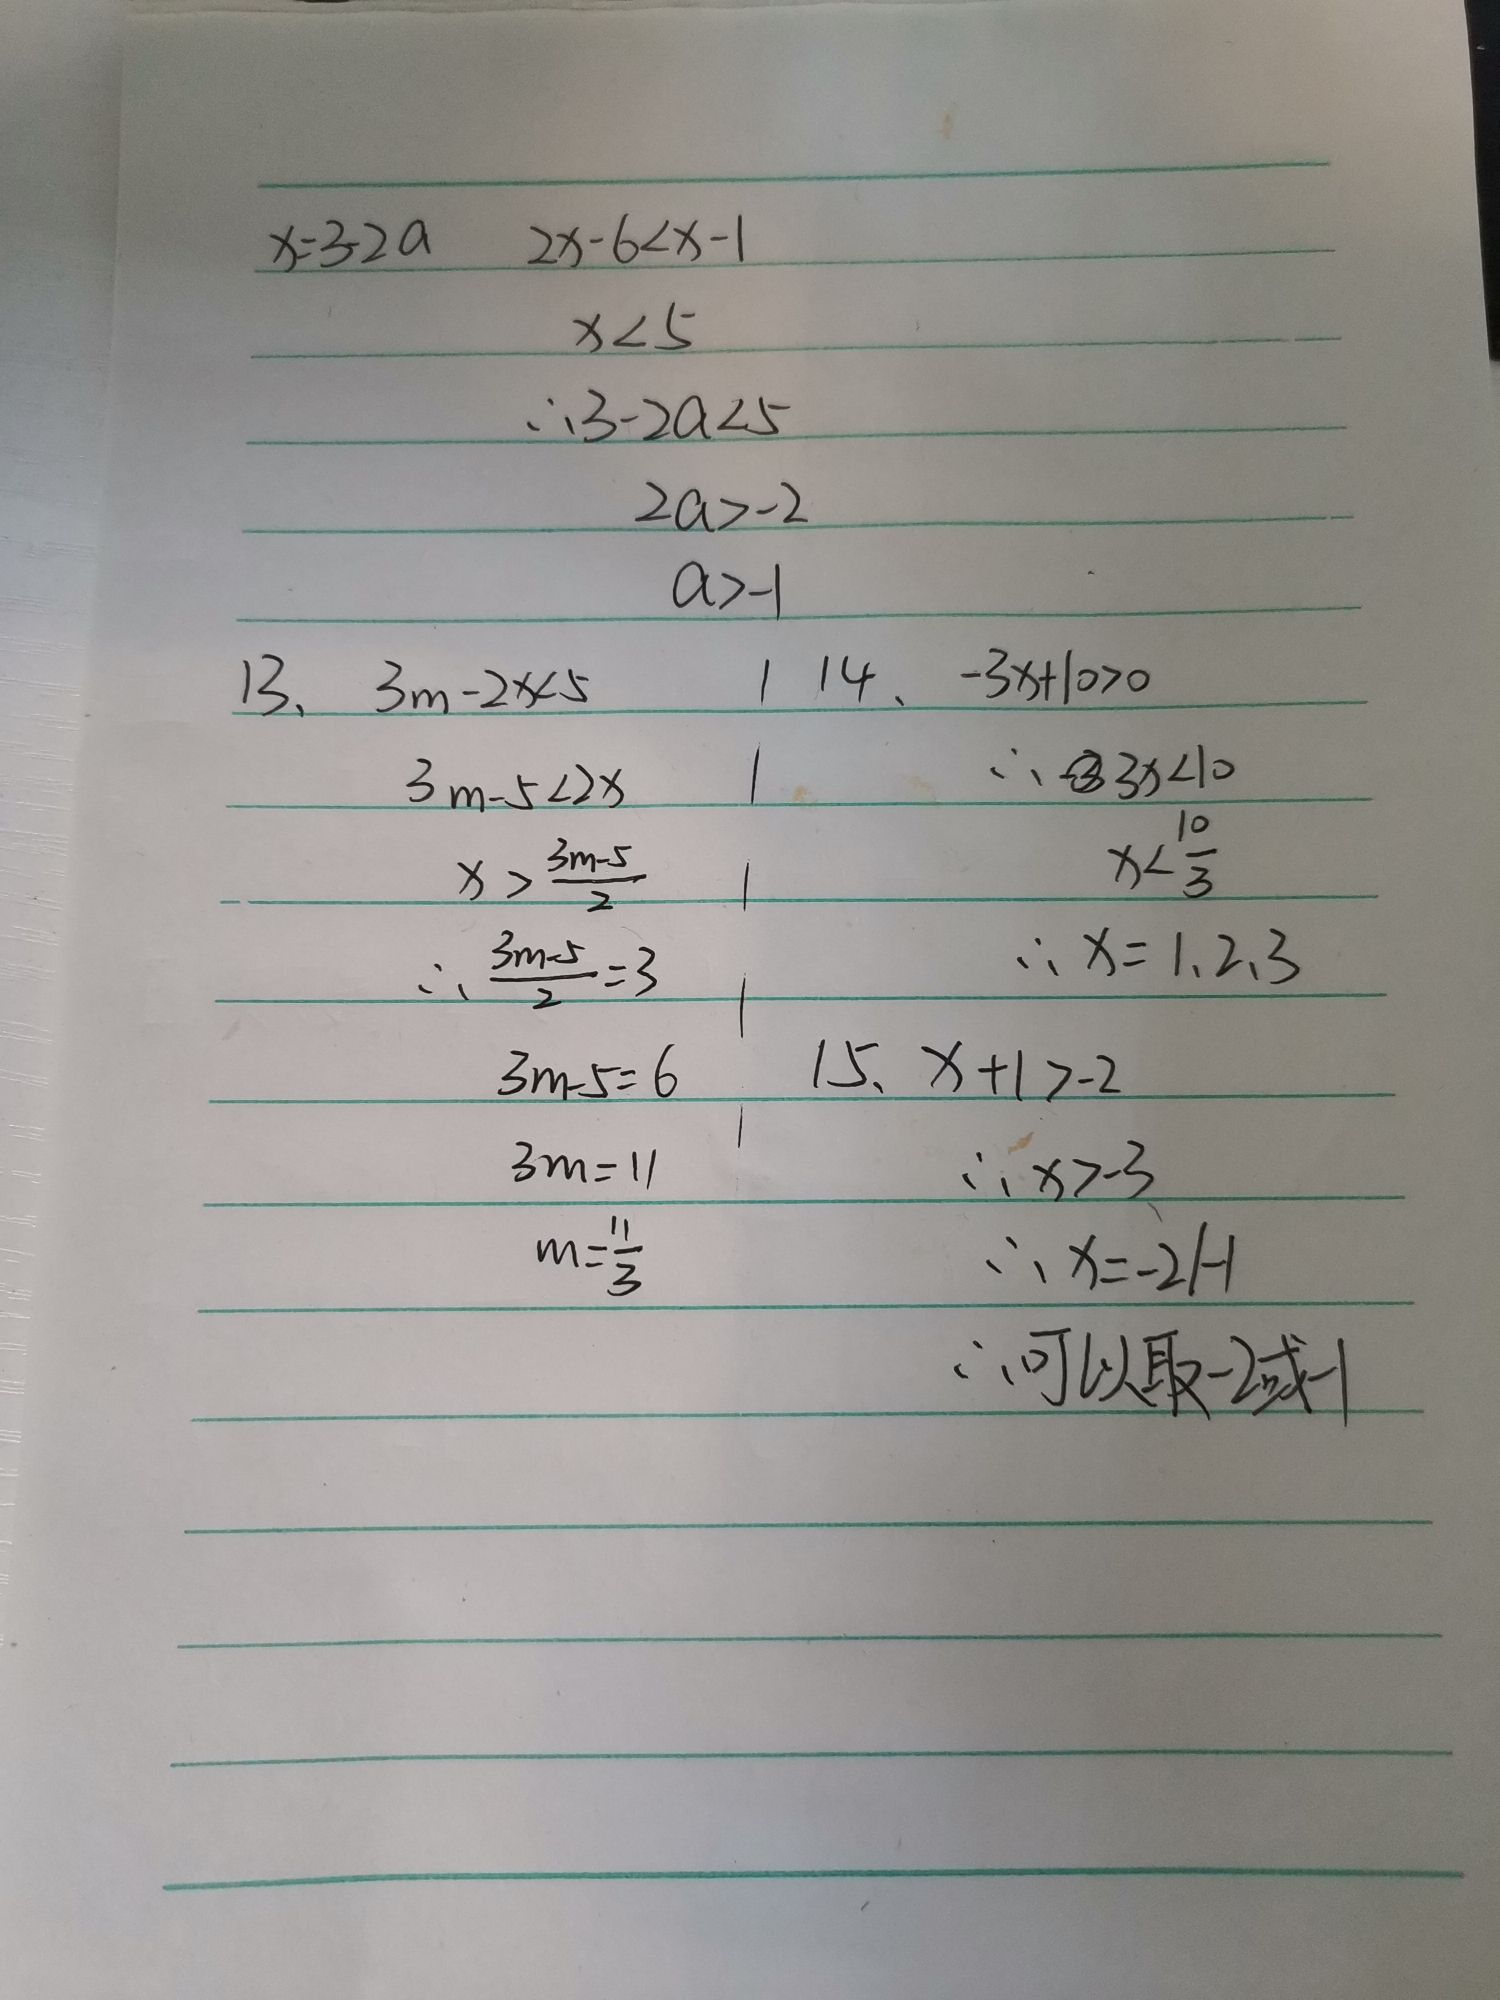 x=3-2a 2x-6<x-1
x<5
∴3-2a<5
2a>-2
a>-1
13、 3m-2x<5
3m-5<2x
x>\frac{3m-5}{2}
∴\frac{3m-5}{2}=3
3m-5=6
3m=11
m=\frac{11}{3}
14、 -3x+10>0
∴3x<10
x<\frac{10}{3}
∴x=1、2、3
15、x+1>-2
∴x>-3
∴x=-2/-1
∴可以取-2或-1